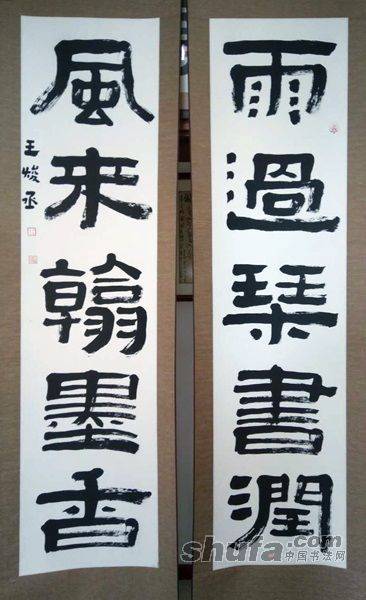 雨過琴書潤
風来翰墨香
王焌丞
shufa.com
中国书法网